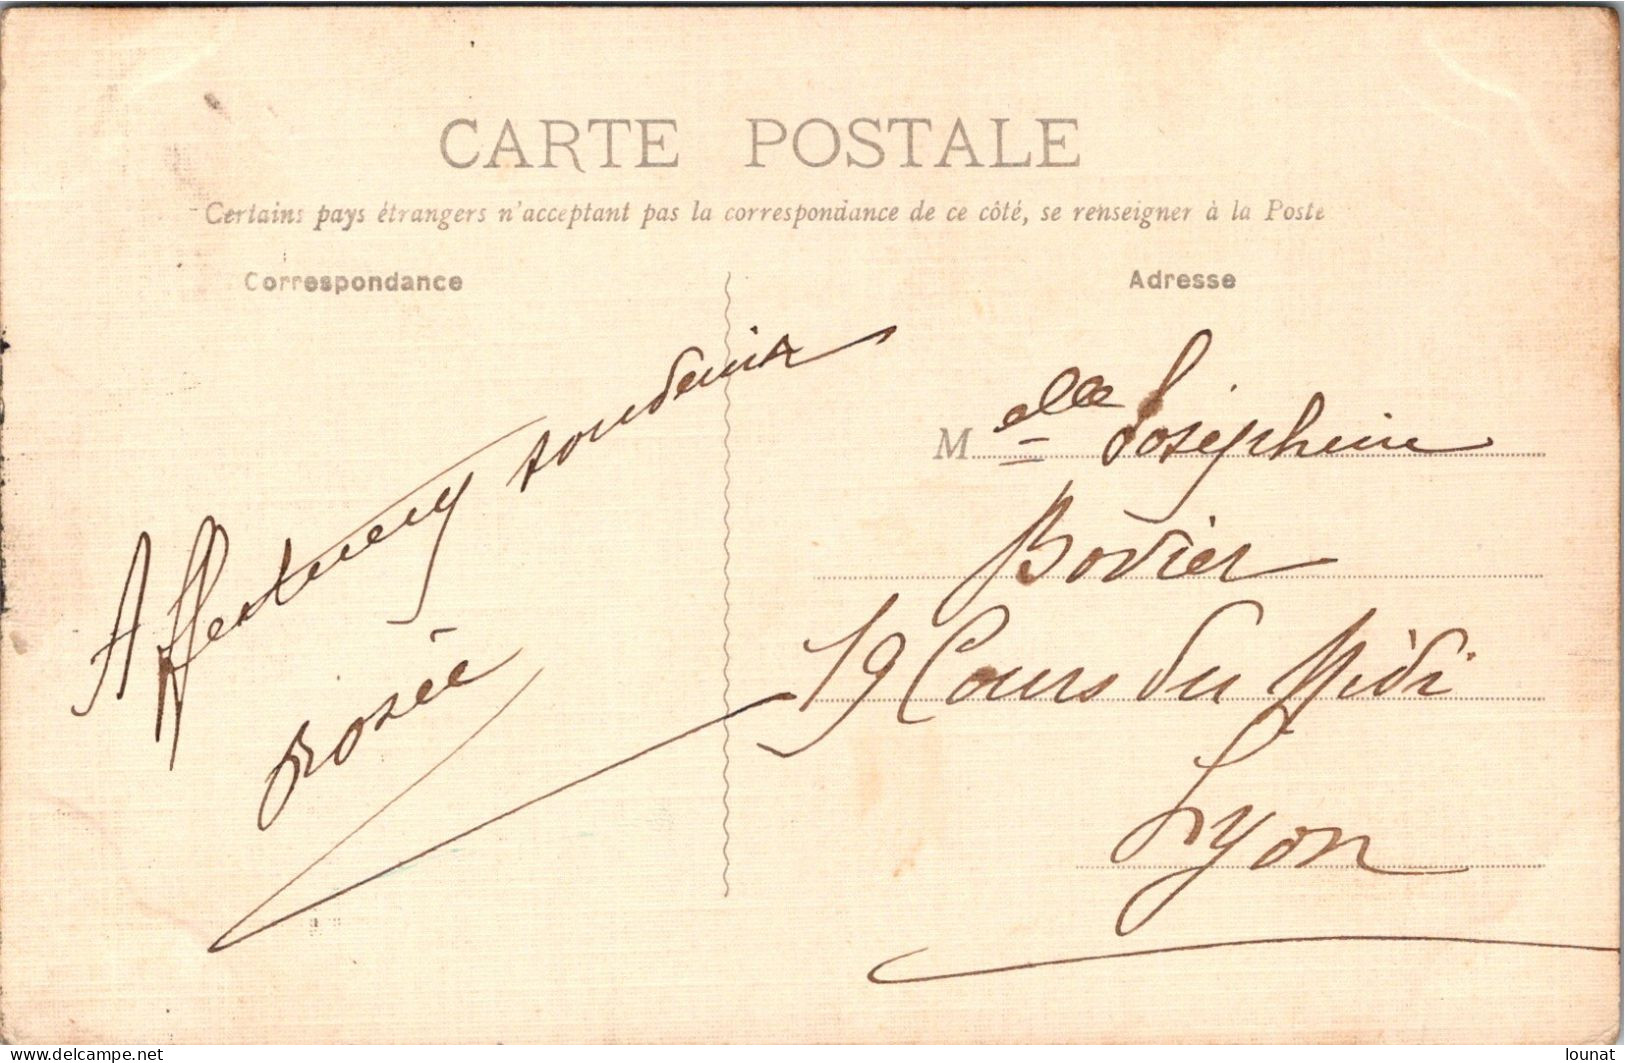 CARTE POSTALE
Certains pays étrangers n'acceptant pas la correspondance de ce côté, se renseigner à la Poste
Correspondance
Affectueux souvenir
Rosée
Adresse
Melle Joséphine
Bovier
19 Cours du Midi
Lyon
www.delcampe.net
lounat